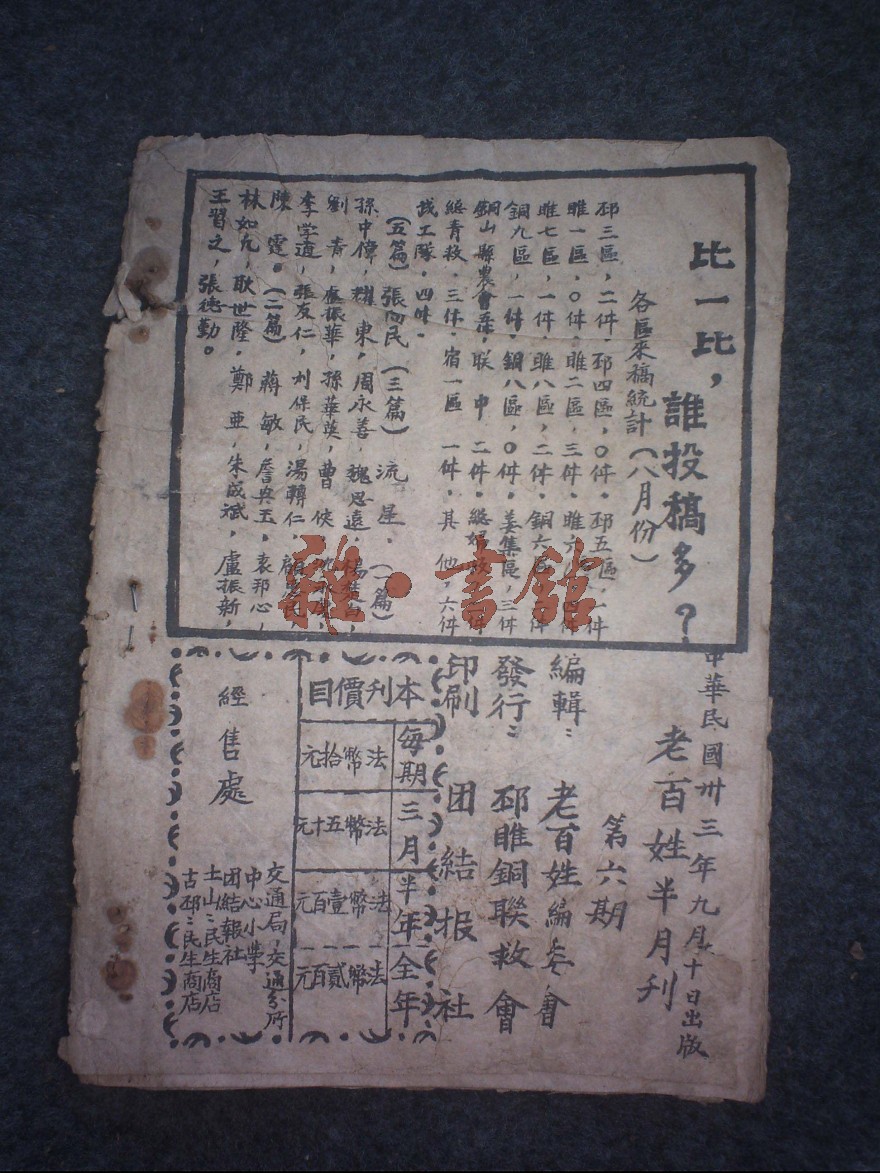 比一比，誰投稿多？
各區來稿統計（八月份）
邳三區，二件．邳四區，〇件．邳五區，一件
睢一區，〇件．睢二區，三件．睢六
睢七區，一件．睢八區，二件．銅六
銅九區，一件．銅八區，〇件．姜集區，三件
銅山縣農會五件，联中 二件．總
總青救．三件．宿一區 一件．其他，六件
战工隊．四件．
（五篇）張向民（三篇）流星．（一篇）
孫中偉，耀東，周永善，魏思遠，楊
劉青，盧振華，孫華英，曹侠
李学道，張友仁，刘保民，湯轉仁
陳霆．（二篇）蔣敏，詹典玉，袁邦心，
林如九，耿世隆，鄭亜，朱成斌，盧振新，
王習之，張德勤。
中華民國卅三年九月十日出版
老百姓半月刋
第六期
編輯：老百姓編委會
發行：邳睢銅聯救會
印刷 团結报社
本刋價目
每期 法幣拾元
三月 法幣五十元
半年 法幣壹百元
全年 法幣貳百元
經售處
交通局，交通分所
中心小學
团結報社
土山：民生商店
古邳：民生商店
雜·書館